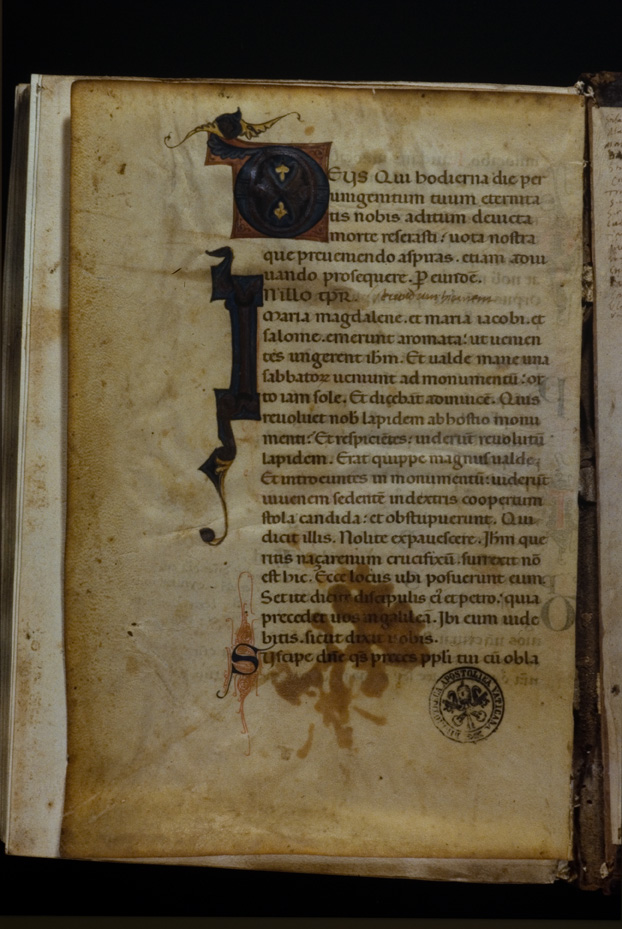 DEUS Qui hodierna die per
unigenitum tuum eternita
tis nobis aditum deuicta
morte reserasti: uota nostra
que preueniendo aspiras. etiam adiu
uando prosequere. P eundē.
IN ILLO tp̄r.
Maria magdalene. et maria iacobi. et
salome. emerunt aromata: ut uenien
tes ungerent ihm. Et ualde mane una
sabbatoꝝ ueniunt ad monumentū: or
to iam sole. Et dicebāt adinuicē. Quis
reuoluet nob lapidem ab hostio monu
menti: Et respiciētes: uiderūt reuolutū
lapidem. Erat quippe magnus ualde.
Et introeuntes in monumentū: uiderūt
iuuenem sedentē in dextris coopertum
stola candida: et obstupuerunt. Qui
dicit illis. Nolite expauescere. Ihm que
ritis naçarenum crucifixū. surrexit nō
est hic. Ecce locus ubi posuerunt eum.
Set ite dicite discipulis eī et petro: quia
precedet uos in galileā. Ibi eum uide
bitis. sicut dixit uobis.
Suscipe dn̄e qs preces ppli tui cū obla
BIBLIOTHECA APOSTOLICA VATICANA